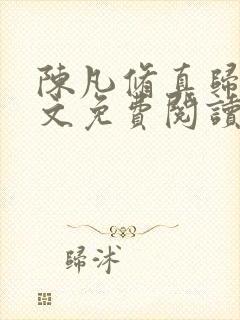 陳凡脩真歸
文免費閱讀
歸沭